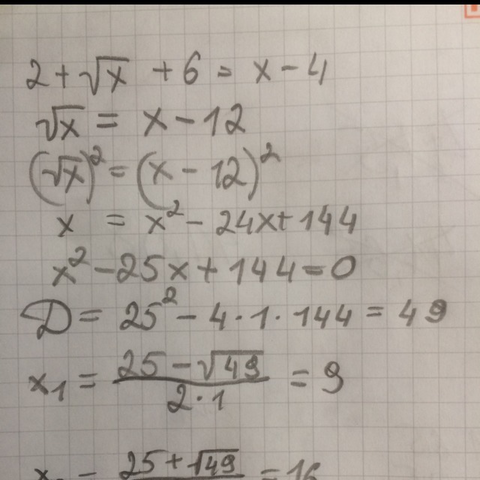 2 + √x + 6 = x - 4
√x = x - 12
(√x)² = (x - 12)²
x = x² - 24x + 144
x² - 25x + 144 = 0
D = 25² - 4 · 1 · 144 = 49
x₁ = (25 - √49)/(2 · 1) = 9
25 + √49 = 16